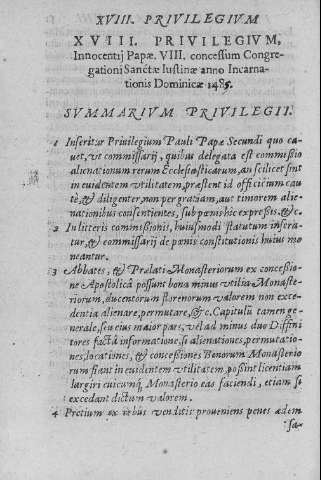 XVIII. PRIVILEGIVM
XVIII. PRIVILEGIVM,
Innocentij Papæ VIII. concessum Congre-
gationi Sanctæ Iustinæ anno Incarna-
tionis Dominicæ 1485.
SVMMARIVM PRIVILEGII.
1 Inseritur Privilegium Pauli Papæ Secundi quo ca-
uet, vt commissarij, quibus delegata est commissio
alienationum rerum Ecclesiasticarum, an scilicet sint
in euidentem vtilitatem, præstent id officium cau
tè, & diligenter, non per gratiam, aut timorem alie-
nationibus consentientes, sub pœnis hic expressis, & c.
2 In litteris commissionis, huiusmodi statutum insera-
tur, & commissarij de pœnis constitutionis huius mo
neantur.
3 Abbates, & Prælati Monasteriorum ex concessio-
ne Apostolica possunt bona minus vtilia Monaste-
riorum, ducentorum florenorum valorem non exce-
dentia alienare, permutare, & c. Capitulū tamen ge-
nerale, seu eius maior pars, vel ad minus duo Diffini
tores factā informatione, si alienationes, permutatio-
nes, locationes, & concessiones Bonorum Monasterio
rum fiant in euidentem vtilitatem, possint licentiam
largiri cuicunq; Monasterio eas faciendi, etiam si
excedant dictum valorem.
4 Pretium ex rebus venditis proueniens penes ædem
sa-